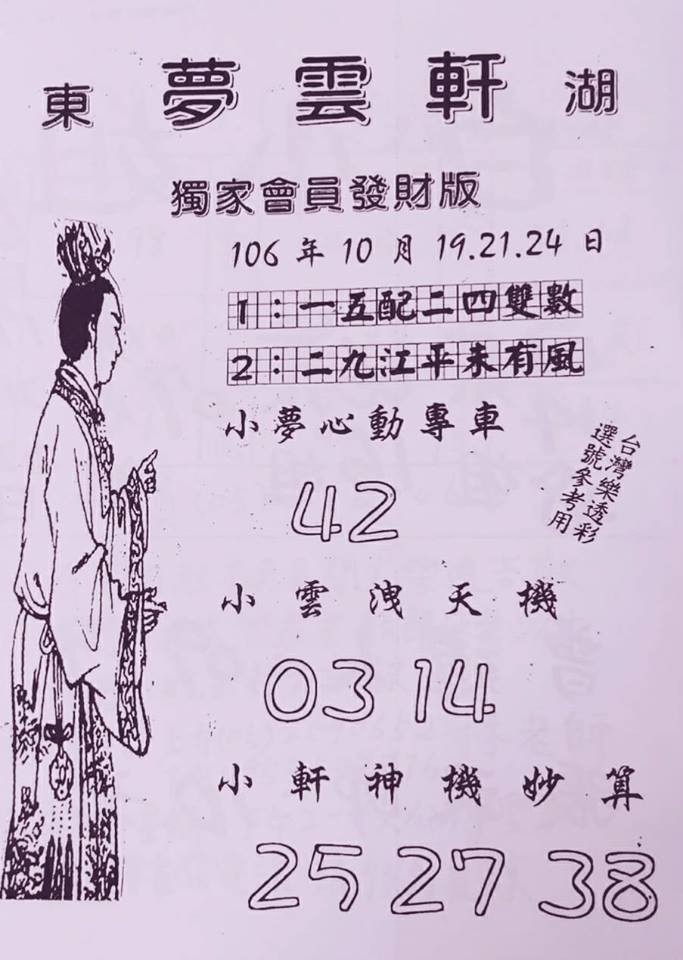 東 夢雲軒 湖
獨家會員發財版
106 年 10 月 19.21.24 日
1：一五配二四雙數
2：二九江平未有風
小夢心動專車
台灣樂透彩
選號參考用
42
小雲洩天機
03 14
小軒神機妙算
25 27 38